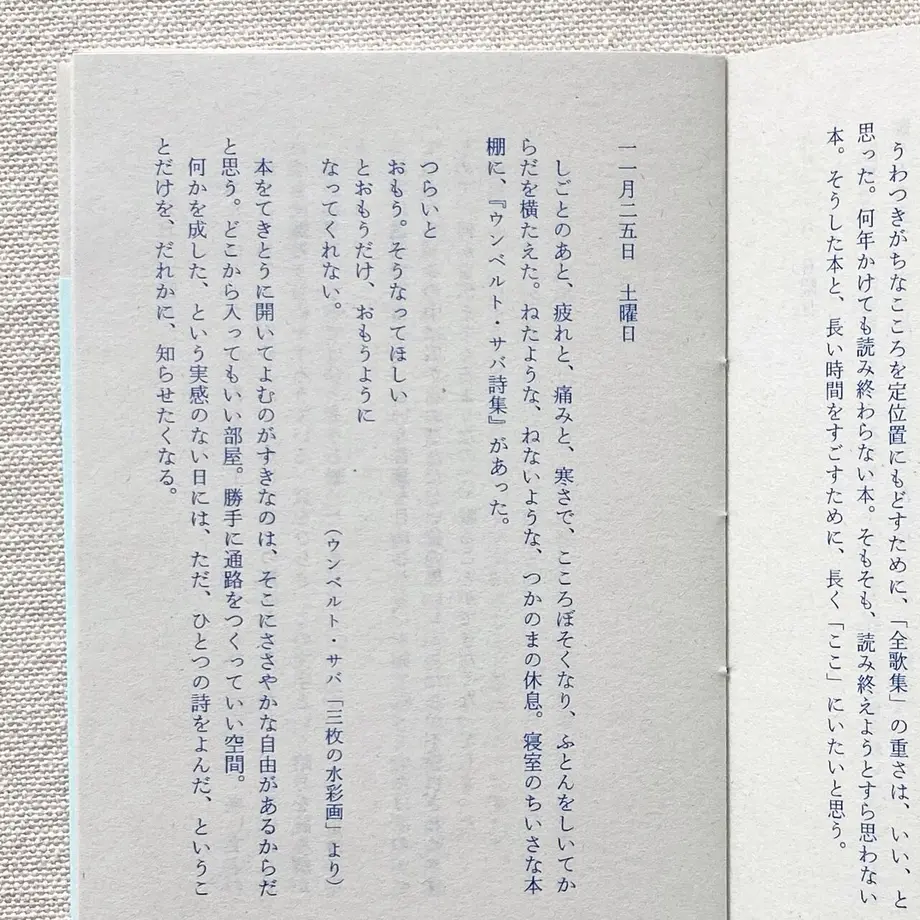 うわつきがちなこころを定位置にもどすために、「全歌集」の重さは、いい、と
思った。何年かけても読み終わらない本。そもそも、読み終えようとすら思わない
本。そうした本と、長い時間をすごすために、長く「ここ」にいたいと思う。
一一月二五日　土曜日
しごとのあと、疲れと、痛みと、寒さで、こころぼそくなり、ふとんをしいてか
らだを横たえた。ねたような、ねないような、つかのまの休息。寝室のちいさな本
棚に、『ウンベルト・サバ詩集』があった。
つらいと
おもう。そうなってほしい
とおもうだけ、おもうように
なってくれない。
（ウンベルト・サバ「三枚の水彩画」より）
本をてきとうに開いてよむのがすきなのは、そこにささやかな自由があるからだ
と思う。どこから入ってもいい部屋。勝手に通路をつくっていい空間。
何かを成した、という実感のない日には、ただ、ひとつの詩をよんだ、というこ
とだけを、だれかに、知らせたくなる。